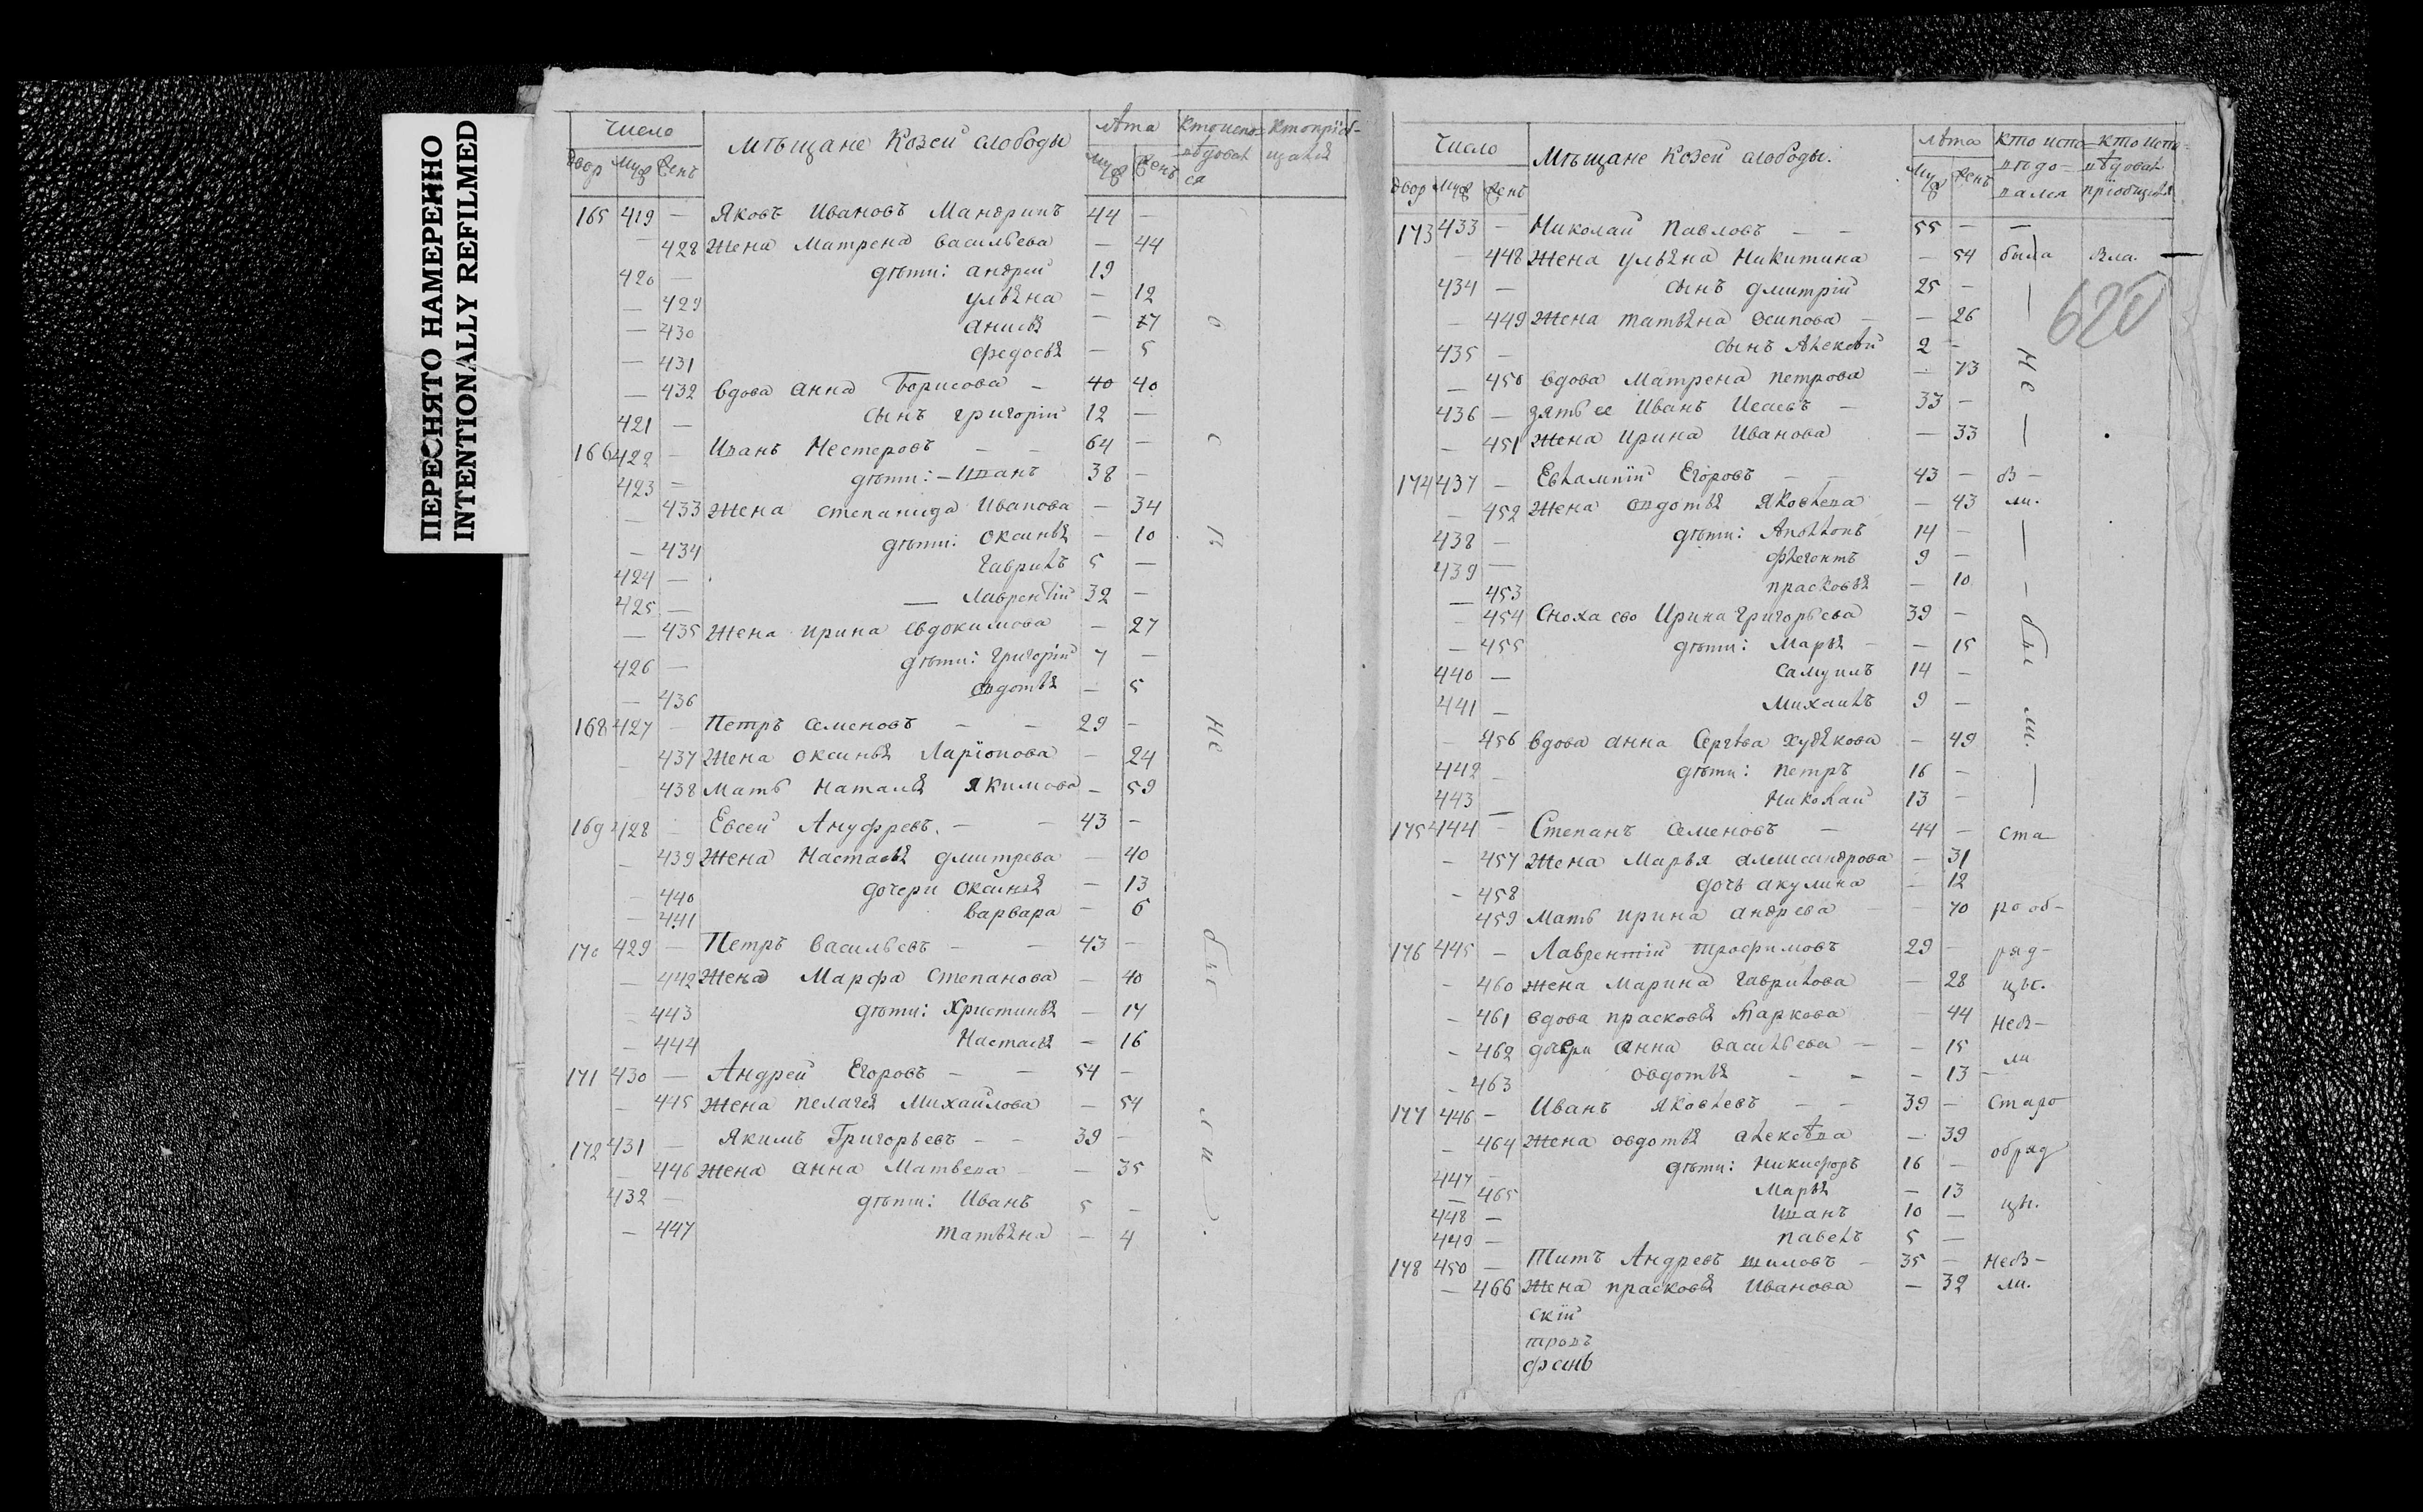 ПЕРЕСНЯТО НАМЕРЕННО
INTENTIONALLY REFILMED
Число Мѣщане Козей слободы лѣта
двор муж женъ муж женъ
165 419 — Яковъ Ивановъ Мандринъ 44 —
— 428 Жена Матрена васильева — 44
420 — дѣти: андрей 19
— 429 ульяна — 12
— 430 анисья — 7
— 431 федосья — 5
— 432 вдова анна Борисова — 40 40
421 — сынъ григорій 12 —
166 422 — Иванъ Нестеровъ — — 64 —
423 — дѣти: — Иванъ 38 —
— 433 Жена степанида Иванова — 34
— 434 дѣти: оксинья — 10
424 — Гаврилъ 5 —
425 — — Лаврентій 32 —
— 435 Жена ирина евдокимова — 27
426 — дѣти: Григорій 7 —
— 436 овдотья — 5
168 427 — Петръ семеновъ — — 29 —
— 437 Жена оксинья Ларіонова — 24
438 Мать наталья якимова — 59
169 428 — Евсей Ануфревъ. — — 43 —
— 439 Жена Настасья дмитрева — 40
— 440 дочери оксинья — 13
— 441 варвара — 6
170 429 — Петръ васильевъ — — 43 —
— 442 Жена Марфа степанова — 40
— 443 дѣти: Христинья — 17
— 444 Настасья — 16
171 430 — Андрей Егоровъ — — 54 —
— 445 Жена пелагея Михайлова — 54
172 431 — Якимъ Григорьевъ — — 39 —
— 446 Жена анна Матвева — — 35
432 — дѣти: Иванъ 5 —
— 447 татьяна — 4
не бы
Число Мѣщане Козей слободы. лѣта
двор муж женъ муж женъ
620
173 433 — Николай Павловъ — — 55 — —
— 448 Жена ульяна Никитина — 54 была
434 — сынъ дмитрій 25 —
— 449 Жена татьяна осипова — — 26
435 — сынъ Алексѣй 2 —
— 450 вдова Матрена петрова — 73 не
436 — зять ее Иванъ Исаевъ — 33 —
— 451 Жена ирина Иванова — 33
174 437 — Евлампій Егоровъ — — 43 —
— 452 Жена овдотья яковлева — 43 ли.
438 — дѣти: Аполлонъ 14 —
439 — флегонтъ 9 —
— 453 прасковья — 10
— 454 Сноха ево Ирина григорьева 39 —
— 455 дѣти: Марья — — 15 бы
440 — самуилъ 14 —
441 — михаилъ 9 —
— 456 вдова анна Сергѣва худякова — 49 ли.
442 — дѣти: петръ 16 —
443 — николай 13 —
175 444 — Степанъ семеновъ — 44 — ста
— 457 Жена Марья александрова — 31
— 458 дочь акулина — 12
459 мать ирина андрева — — 70 рооб-
176 445 — Лаврентій трофимовъ 29 — ряд-
— 460 жена марина гаврилова — 28 цы.
— 461 вдова прасковья Маркова — 44
— 462 дочери анна васильева — — 15 ли
— 463 овдотья — — — 13 —
177 446 — Иванъ яковлевъ — — 39 — старо
— 464 Жена овдотья алексѣва — 39
447 — дѣти: никифоръ 16 — обряд
— 465 марья — 13
448 — Иванъ 10 — цы.
449 — павелъ 5 —
178 450 — Титъ Андревъ шиловъ — 35 —
— 466 Жена прасковья Иванова — 32 ли.
скій